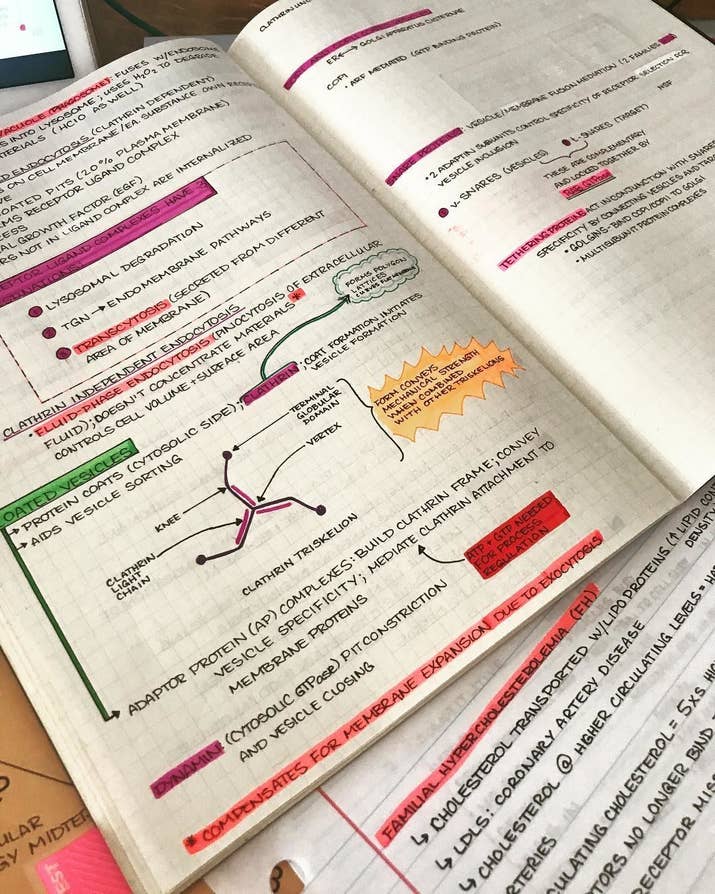 VACUOLE (PHAGOSOME): FUSES W/ENDOSOME
INTO LYSOSOME; USES H₂O₂ TO DEGRADE
(HClO AS WELL)
ENDOCYTOSIS (CLATHRIN DEPENDENT)
ON CELL MEMBRANE/EA. SUBSTANCE OWN
PITS (20% PLASMA MEMBRANE)
RECEPTOR LIGAND COMPLEX
GROWTH FACTOR (EGF)
NOT IN LIGAND COMPLEX ARE INTERNALIZED
LIGAND COMPLEXES HAVE 3
LYSOSOMAL DEGRADATION
TGN → ENDOMEMBRANE PATHWAYS
TRANSCYTOSIS (SECRETED FROM DIFFERENT
AREA OF MEMBRANE)
CLATHRIN INDEPENDENT ENDOCYTOSIS
• FLUID-PHASE ENDOCYTOSIS (PINOCYTOSIS OF EXTRACELLULAR
FLUID); DOESN'T CONCENTRATE MATERIALS *
CONTROLS CELL VOLUME + SURFACE AREA
FORMS POLYGON
LATTICES
OATED VESICLES
→ PROTEIN COATS (CYTOSOLIC SIDE); CLATHRIN; COAT FORMATION INITIATES
VESICLE FORMATION
→ AIDS VESICLE SORTING
TERMINAL
GLOBULAR
DOMAIN
VERTEX
KNEE
CLATHRIN
LIGHT
CHAIN
CLATHRIN TRISKELION
FORM CONVEYS
MECHANICAL STRENGTH
WHEN COMBINED
WITH OTHER TRISKELIONS
ADAPTOR PROTEIN (AP) COMPLEXES: BUILD CLATHRIN FRAME; CONVEY
VESICLE SPECIFICITY; MEDIATE CLATHRIN ATTACHMENT TO
MEMBRANE PROTEINS
ATP + GTP NEEDED
FOR PROCESS
REGULATION
DYNAMIN: (CYTOSOLIC GTPase) PIT CONSTRICTION
AND VESICLE CLOSING
* COMPENSATES FOR MEMBRANE EXPANSION DUE TO EXOCYTOSIS
CLATHRIN
ER ← → GOLGI APPARATUS CISTERNAE
COPI • ARF MEDIATED (GTP BINDING PROTEIN)
SNARE PROTEINS: VESICLE/MEMBRANE FUSION MEDIATION (2 FAMILIES
• 2 ADAPTIN SUBUNITS CONTROL SPECIFICITY OF RECEPTOR SELECTION FOR
VESICLE INCLUSION
NSF
V-SNARES (VESICLES)
-SNARES (TARGET)
THESE ARE COMPLEMENTARY
AND LOCKED TOGETHER BY
TETHERING PROTEINS: ACT IN CONJUNCTION WITH SNARES
SPECIFICITY BY CONNECTING VESICLES AND
• GOLGINS - BIND COPI/COPII TO GOLGI
• MULTISUBUNIT PROTEIN COMPLEXES
FAMILIAL HYPERCHOLESTEROLEMIA (FH)
↳ CHOLESTEROL TRANSPORTED W/LIPOPROTEINS (↑ LIPID
DENSITY
↳ LDLS: CORONARY ARTERY DISEASE
↳ CHOLESTEROL @ HIGHER CIRCULATING LEVELS =
CHOLESTEROL = 5XS
NO LONGER BIND
RECEPTOR
MIDTER